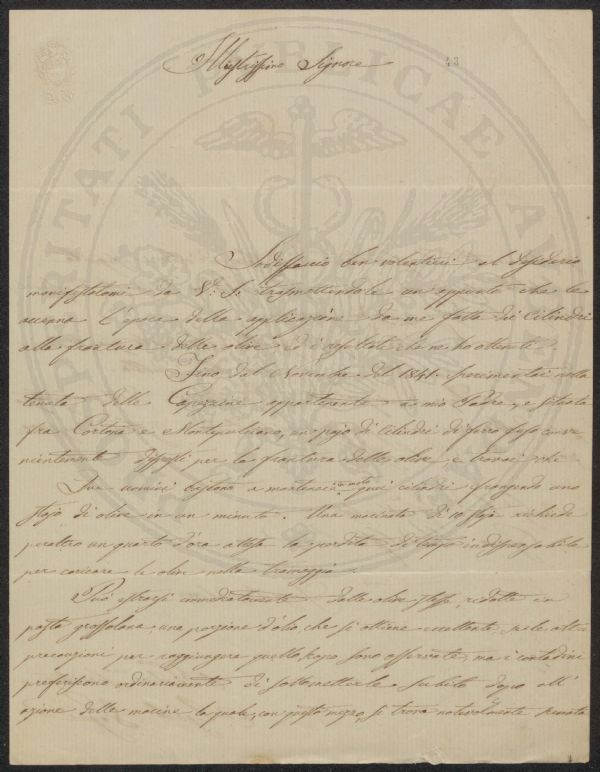 Illustrissimo Signore
43
Sodisfaccio ben volentieri al desiderio
manifestatomi da V. S. trasmettendole un appunto che le
accenna l'epoca della applicazione da me fatta dei Cilindri
alla frantura delle olive ed i resultati che ne ho ottenuti.
Fino dal Novembre del 1841. sperimentai nella
tenuta delle Capezzine appartenente a mio Padre, e situata
fra Cortona e Montepulciano, un pajo di Cilindri di ferro fuso conve-
nientemente disposti per la frantura delle olive, e trovai che
due uomini bastano a mantenere in moto quei cilindri frangendo uno
stajo di olive in un minuto. Una macinata di 10 staja richiede
peraltro un quarto d'ora attesa la perdita di tempo indispensabile
per caricare le olive nella tramoggia.
Può estrarsi immediatamente dalle olive stesse, ridotte in
pasta grossolana, una porzione d'olio che si ottiene eccellente, se le altre
precauzioni per raggiungere quello scopo sono osservate, ma i contadini
preferiscono ordinariamente di sottometterle subito dopo all'
azione delle macine la quale, con questo mezzo, si trova notevolmente
PROSPERITATI PUBLICAE AUGENDAE